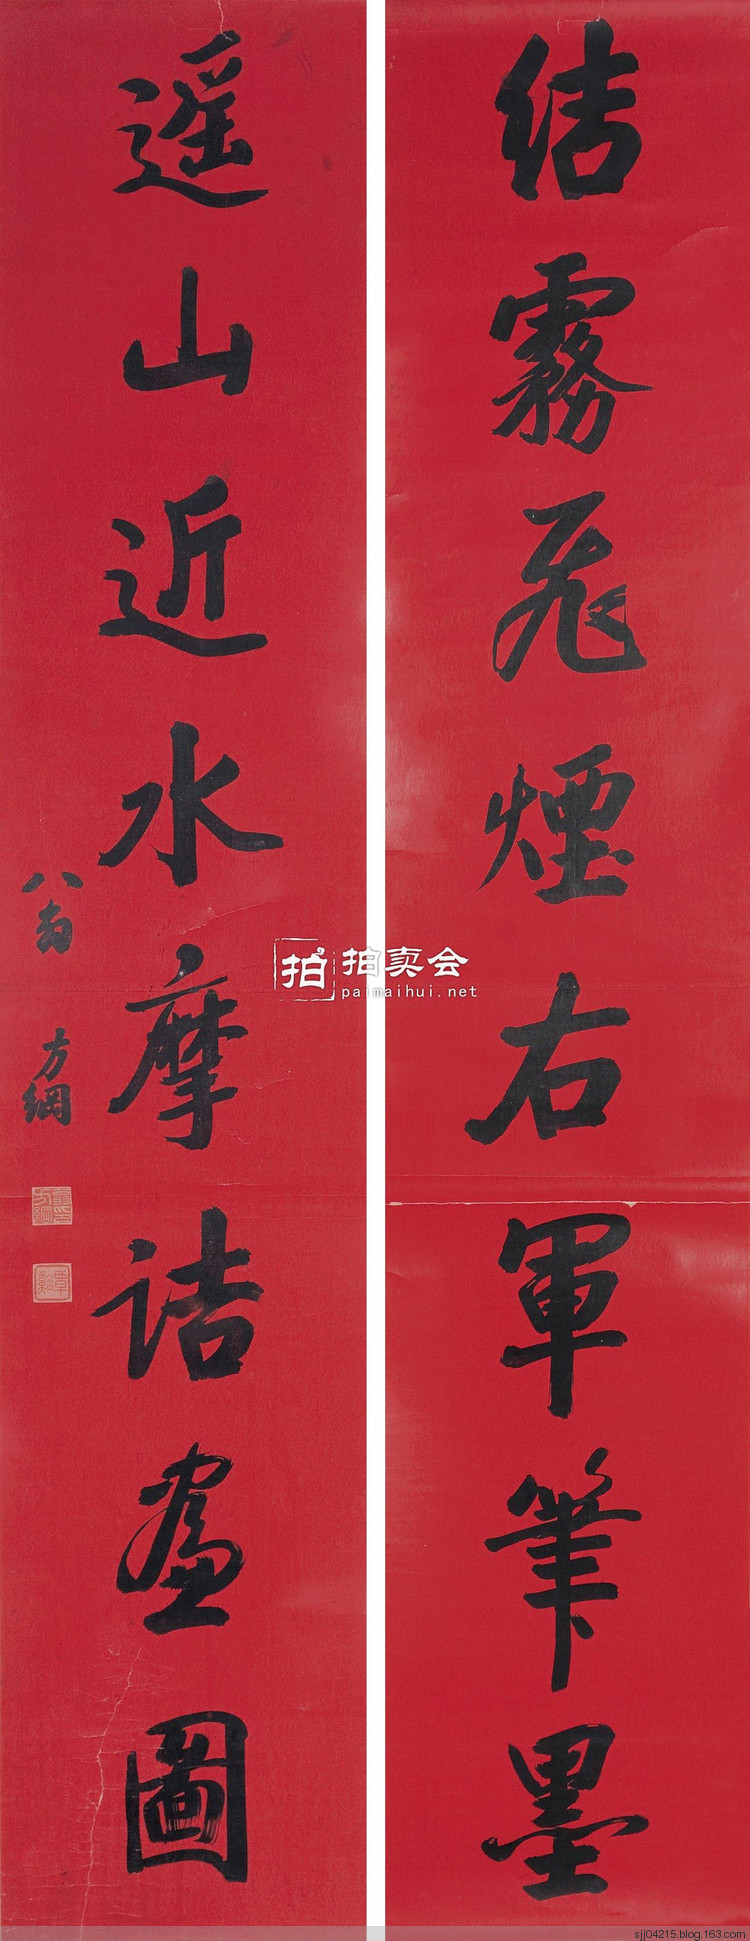 结霧飛煙右軍筆墨
遥山近水摩詰畫圖
翁方綱
拍 拍卖会
paimaihui.net
sjj04215.blog.163.com